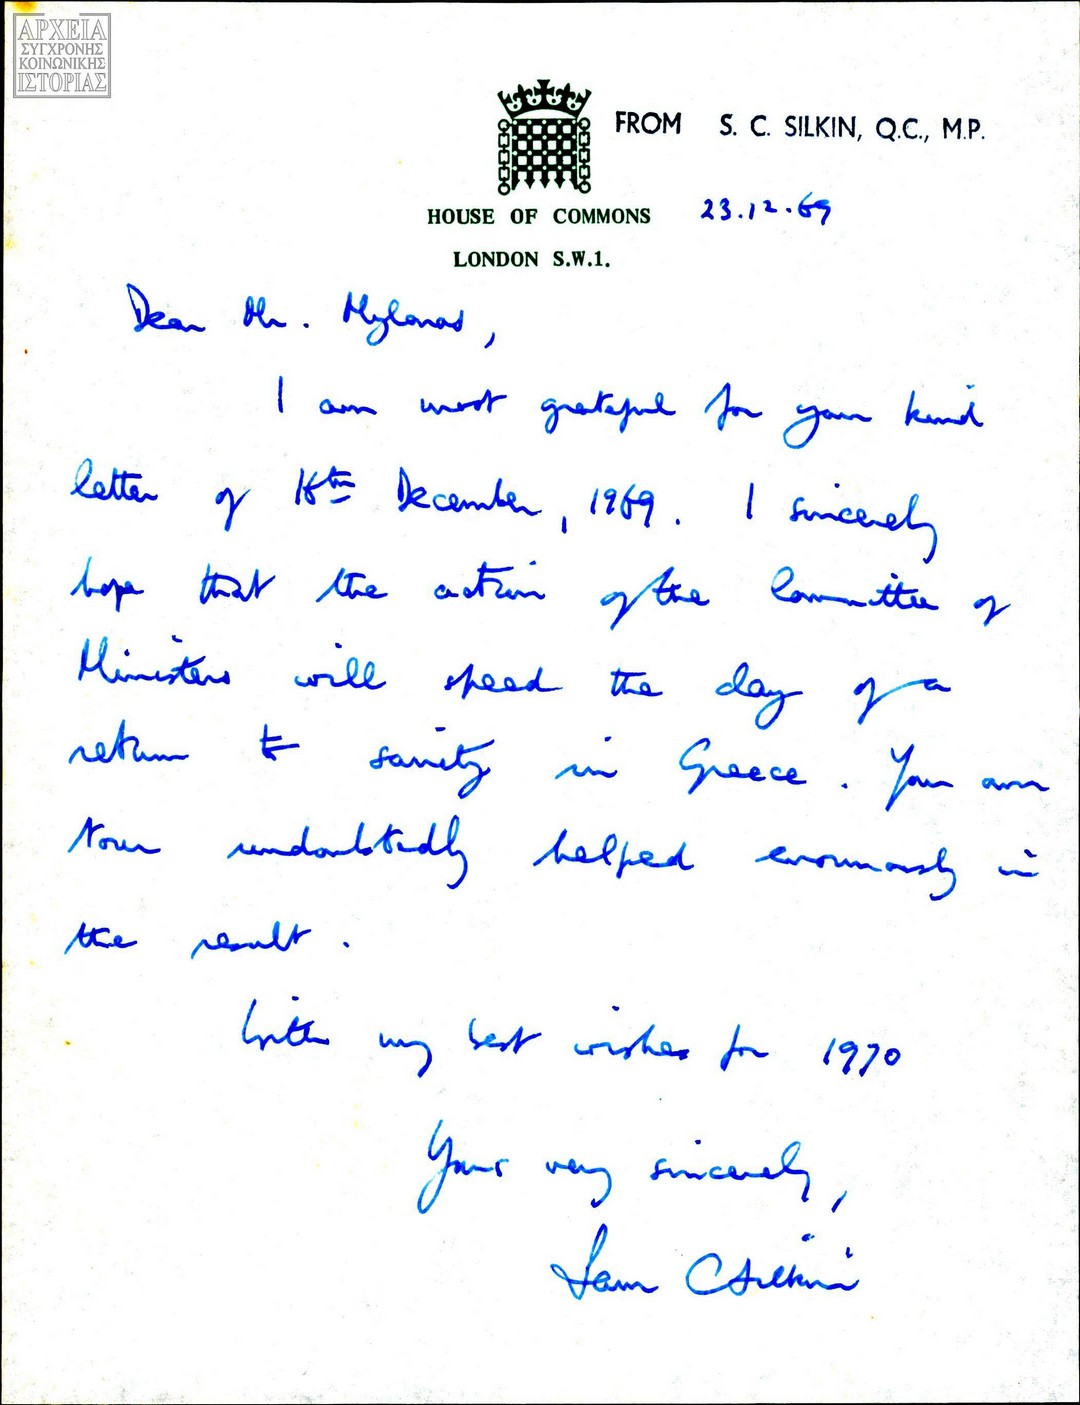 ΑΡΧΕΙΑ
ΣΥΓΧΡΟΝΗΣ
ΚΟΙΝΩΝΙΚΗΣ
ΙΣΤΟΡΙΑΣ
FROM S. C. SILKIN, Q.C., M.P.
HOUSE OF COMMONS
23.12.69
LONDON S.W.1.
Dear Mr. Mylonas,
I am most grateful for your kind
letter of 16th December, 1969. I sincerely
hope that the action of the Committee of
Ministers will speed the day of a
return to sanity in Greece. Your own
tour undoubtedly helped enormously in
the result.
With my best wishes for 1970
Yours very sincerely,
Sam C Silkin